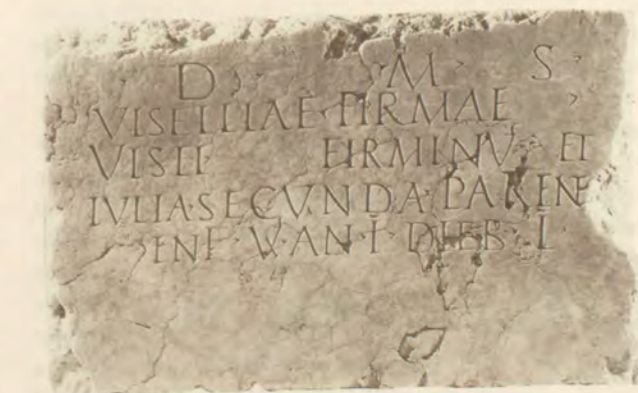 D M S
VISELLIAE FIRMAE
FIRMINV ET
IVLIA·SECVNDA·PAREN
DIEB·L·